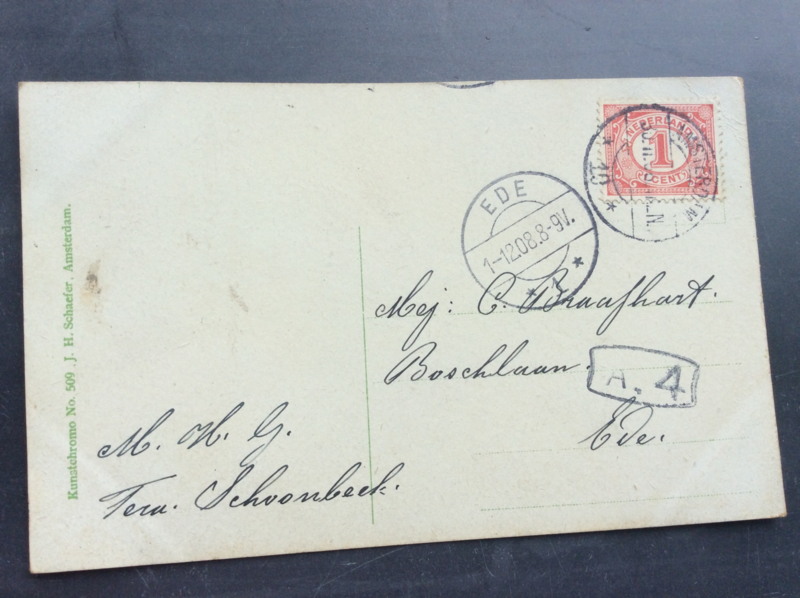 Kunstchromo No. 509 . J. H. Schaefer, Amsterdam.
NEDERLAND
1
CENT
AMSTERDAM
EDE
1-12.08.8-9V.
* 1 *
Mej: C. Braafhart.
Boschlaan.
A. 4
Ede.
M. H. G.
Schoonbeek.